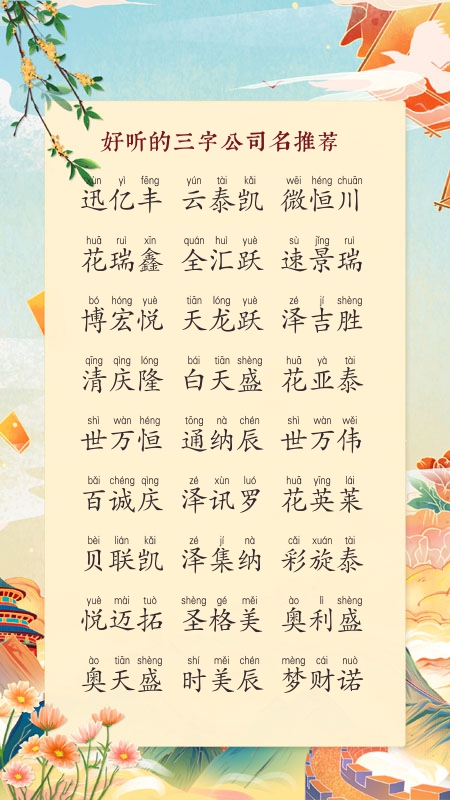 好听的三字公司名推荐
xùn yì fēng yún tài kǎi wēi héng chuān
迅亿丰 云泰凯 微恒川
huā ruì xīn quán huì yuè sù jǐng ruì
花瑞鑫 全汇跃 速景瑞
bó hóng yuè tiān lóng yuè zé jí shèng
博宏悦 天龙跃 泽吉胜
qīng qìng lóng bái tiān shèng huā yà tài
清庆隆 白天盛 花亚泰
shì wàn héng tōng nà chén shì wàn wěi
世万恒 通纳辰 世万伟
bǎi chéng qìng zé xùn luó huā yīng lái
百诚庆 泽讯罗 花英莱
bèi lián kǎi zé jí nà cǎi xuán tài
贝联凯 泽集纳 彩旋泰
yuè mài tuò shèng gé měi ào lì shèng
悦迈拓 圣格美 奥利盛
ào tiān shèng shí měi chén mèng cái nuò
奥天盛 时美辰 梦财诺